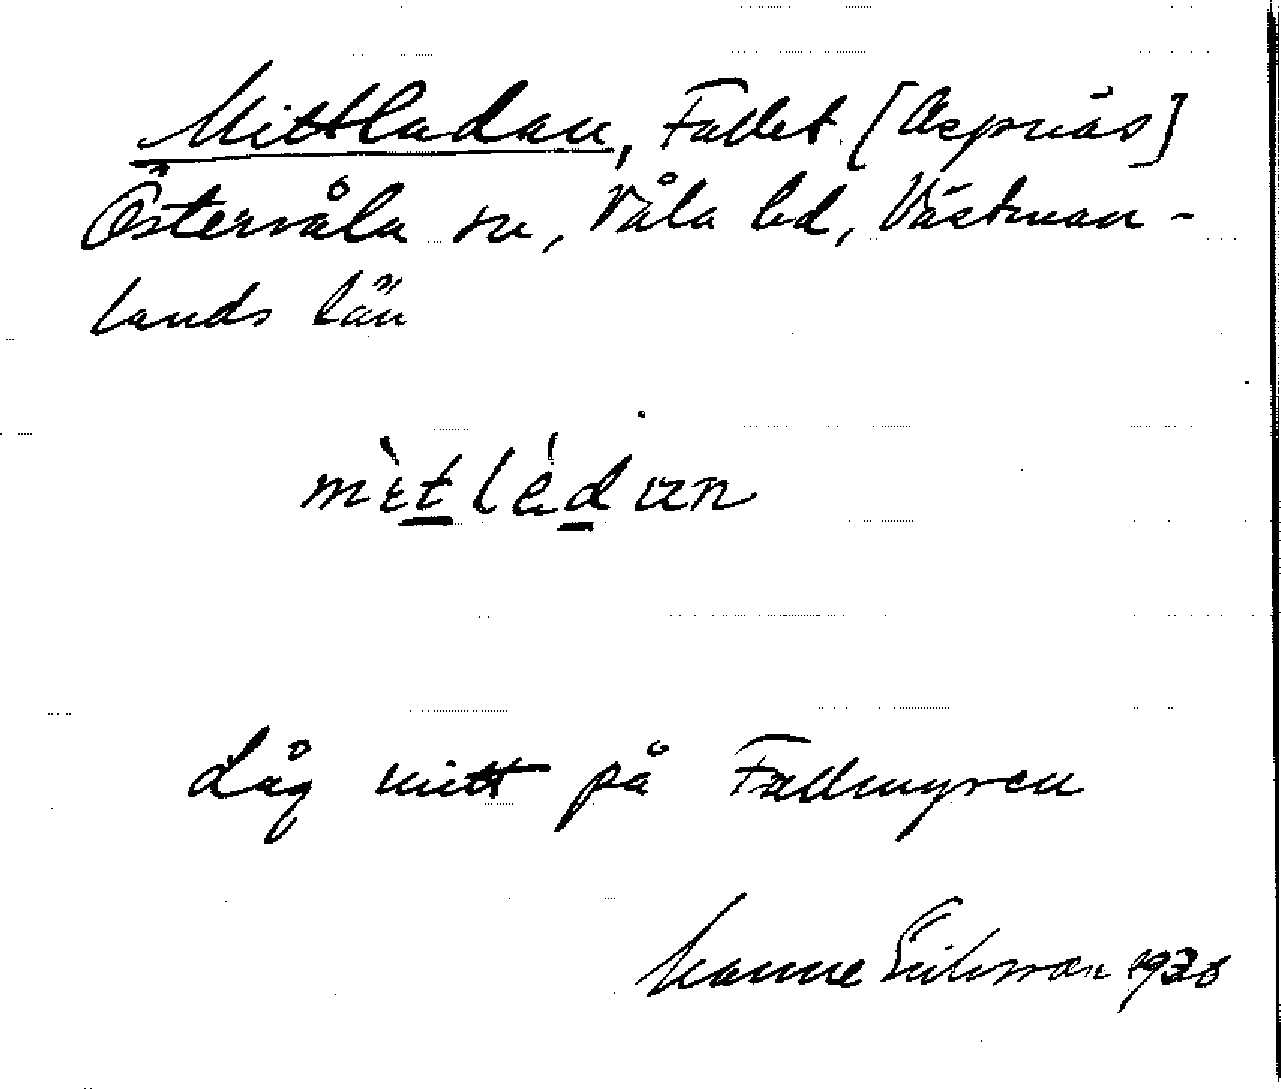 Mittladan, Fallet [Aspnäs]
Östervåla sn, Våla hd, Västman-
lands län
mìtlàdan
Låg mitt på Fallmyren
Manne Eriksson 1936